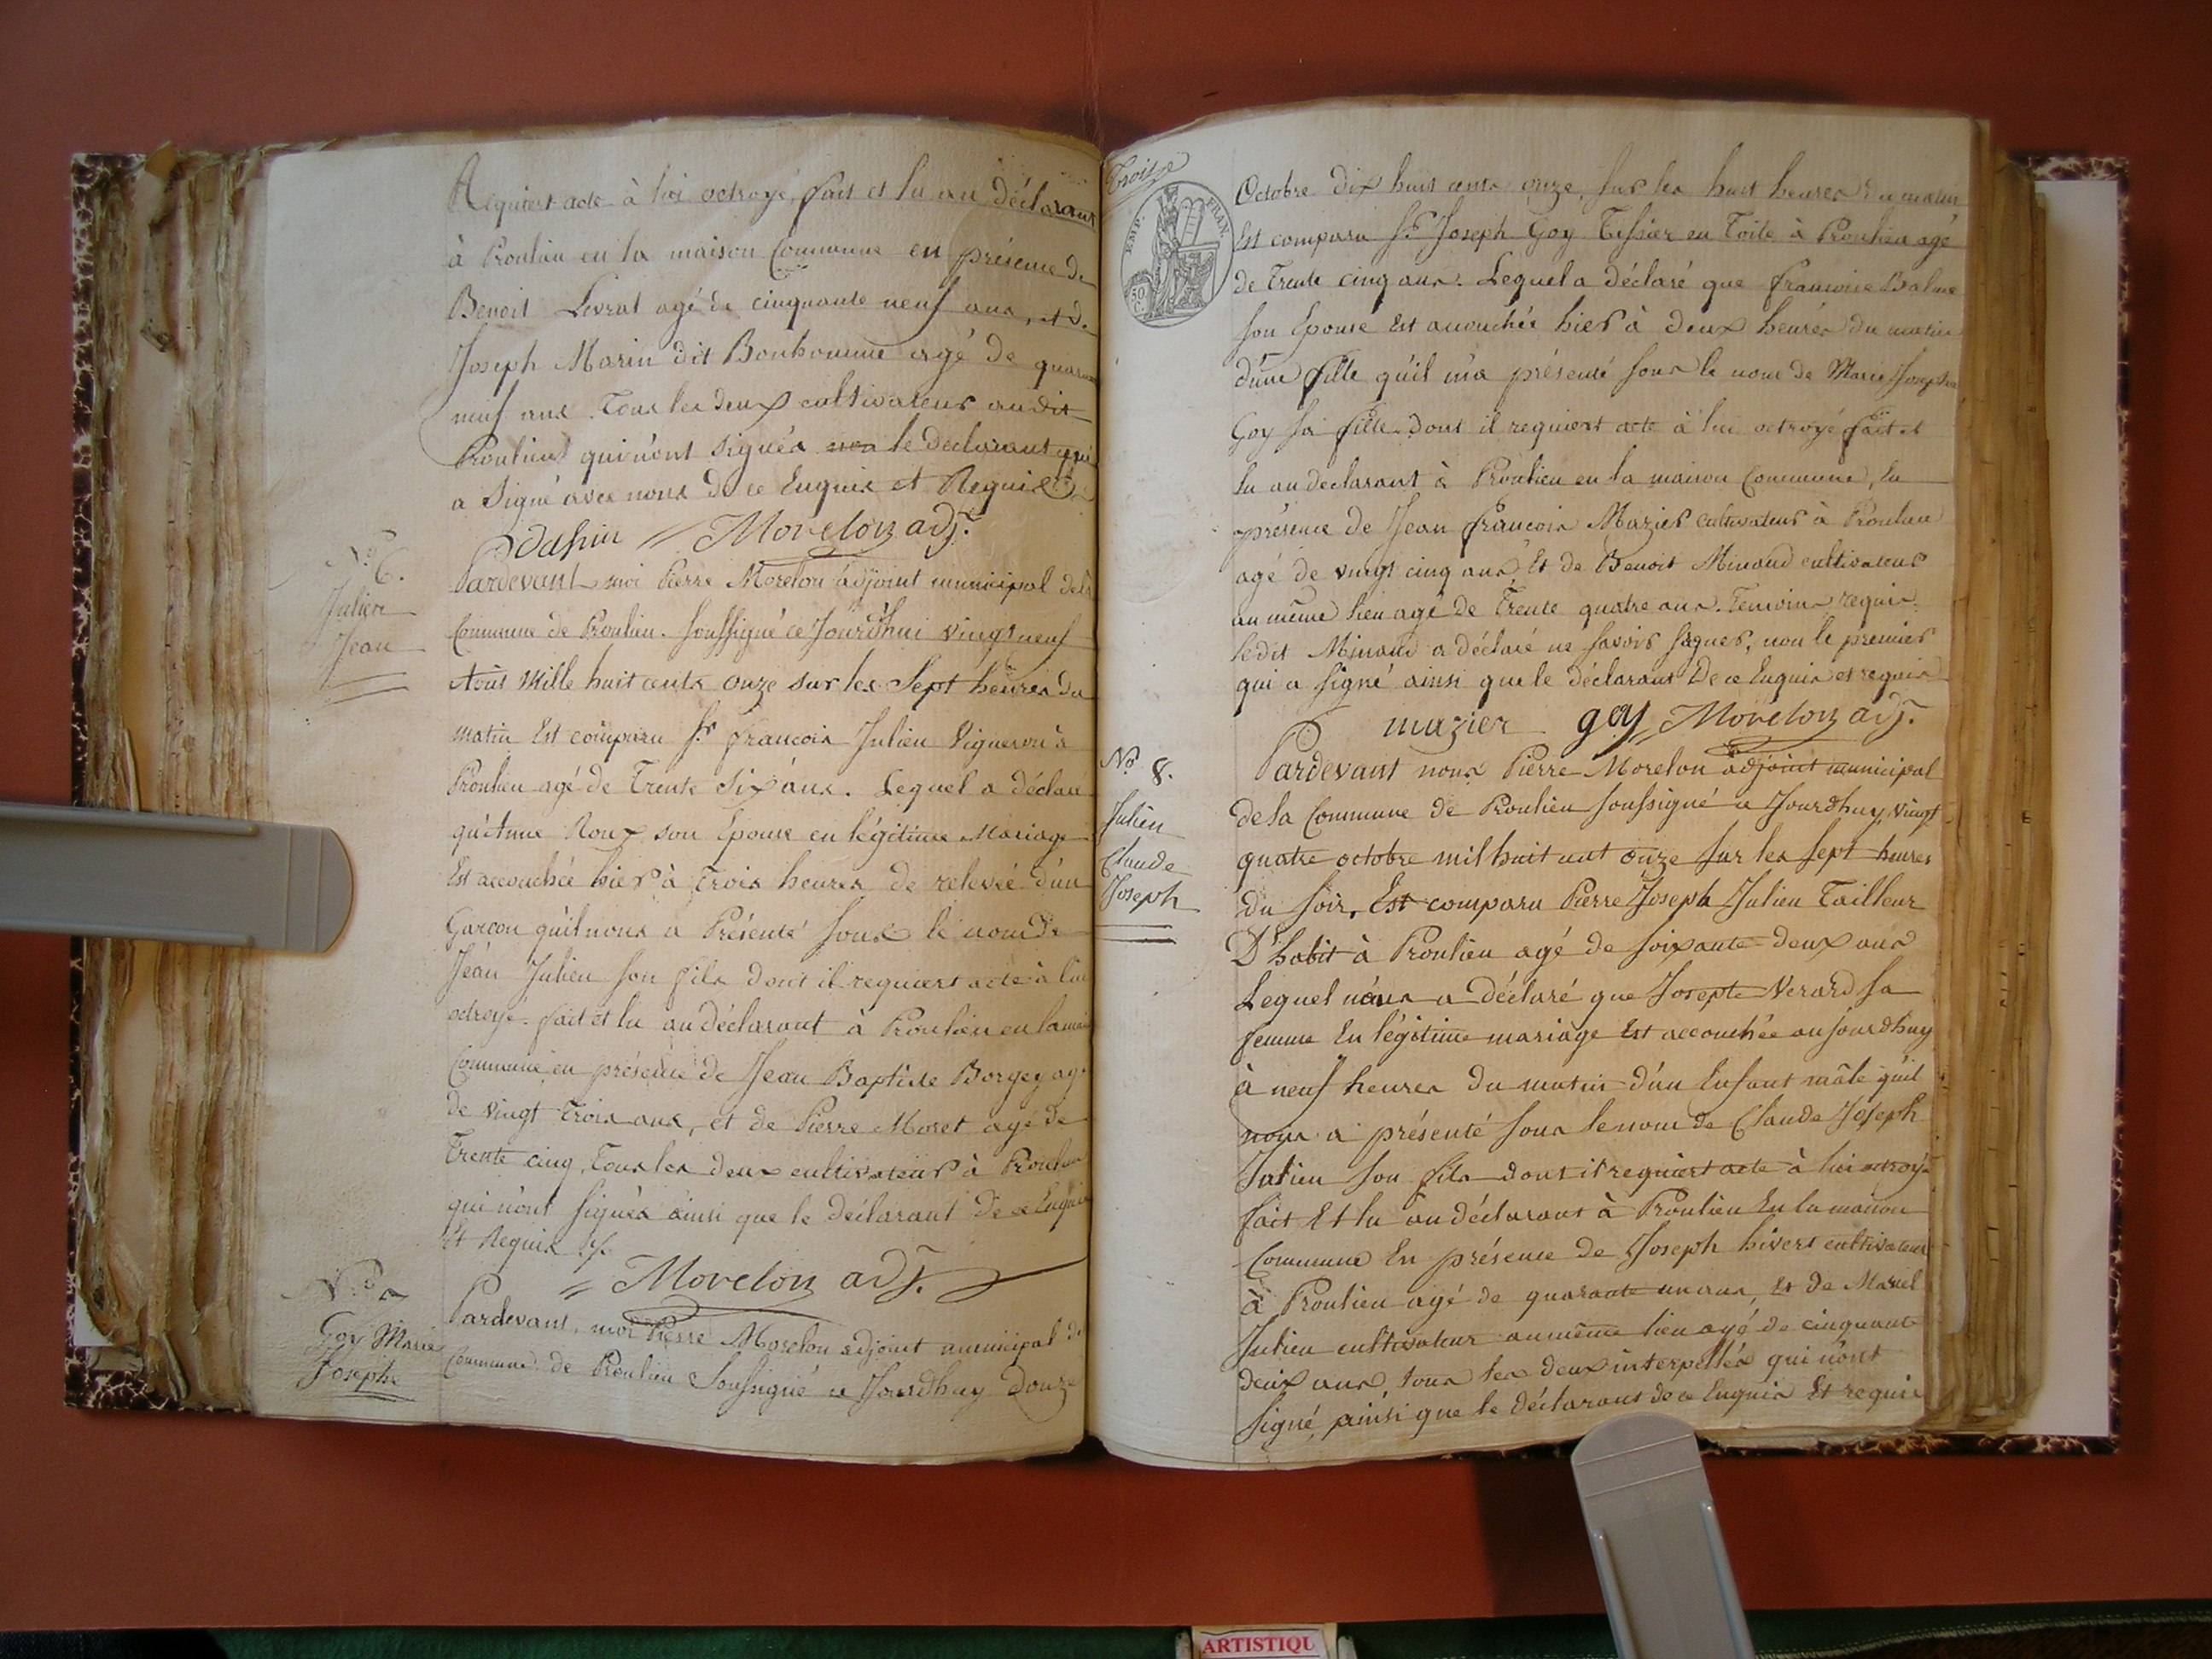 Requiert acte à lui octroyé, fait et lu au déclarant
à Proulieu en la maison Commune en présence de
Benoit Levrat agé de cinquante neuf ans, et de
Joseph Marin dit Bonhomme agé de quarante
neuf ans. Tous les deux cultivateur audit
Proulieu qui n'ont signés non le declarant qui
a Signé avec nous de ce Enquis et Requis
Morelon adj.
N.º 6.
Julien
Jean
Pardevant moi Pierre Morelon adjoint municipal dela
Commune de Proulieu. Soussigné ce Jourd'hui vingt neuf
Aout Mille huit cents onze sur les Sept heures du
matin Est comparu Sr. francois Julien Vigneron à
Proulieu agé de Trente Six ans. Lequel a déclaré
qu'Anne Roux son Epouse en légitime Mariage
Est accouchée hier à Trois heures de relevée d'un
Garcon qu'il nous a Présenté sous le nom de
Jean Julien son fils dont il requiert acte à lui
octroyé. fait et lu au déclarant à Proulieu en la maison
Commune en présence de Jean Baptiste Borgey agé
de vingt Trois ans, et de Pierre Moret agé de
Trente cinq, Tous les deux cultivateur à Proulieu
qui n'ont signés ainsi que le déclarant de ce Enquis
Et Requis
Morelon adj.
Goy Marie
Josephe
Pardevant, moi Pierre Morelon adjoint municipal de
Commune de Proulieu Soussigné ce Jourdhuy Douze
Troisze
EMP. FRAN.
50 C.
Octobre dix huit cents onze, sur les huit heures du matin
Est comparu Sr. Joseph Goy Tissier en Toile à Proulieu agé
de Trente cinq ans. Lequel a déclaré que francoise Balme
son Epouse Est accouchée hier à deux heures du matin
d'une fille qu'il m'a présenté sous le nom de Marie Josephe
Goy sa fille. Dont il requiert acte à lui octroyé fait et
lu au declarant à Proulieu en la maison Commune, En
présence de Jean francois Mazier Cultivateur à Proulieu
agé de vingt cinq ans Et de Benoit Minaud cultivateur
au même lieu agé de Trente quatre ans. Temoins requis.
ledit Minaud a déclaré ne savoir signer, non le premier
qui a signé ainsi que le déclarant De ce Enquis et requis
mazier goy Morelon adj.
Nº. 8.
Julien
Claude
Joseph
Pardevant nous Pierre Morelon adjoint municipal
de la Commune de Proulieu soussigné ce Jourdhuy, vingt
quatre octobre mil huit cent onze sur les sept heures
du soir, Est comparu Pierre Joseph Julien Tailleur
D'habit à Proulieu agé de soixante deux ans
Lequel nous a déclaré que Josepte Verard sa
femme En légitime mariage Est accouchée aujourdhuy
à neuf heures du matin d'un Enfant mâle qu'il
nous a présenté sous le nom de Claude Joseph
Julien son fils dont il requiert acte à lui octroyé
fait Et lu au déclarant à Proulieu En la maison
Commune En présence de Joseph hivert cultivateur
à Proulieu agé de quarante un ans, Et de
Julien cultivateur au même lieu agé de cinquante
deux ans tous les deux interpellés qui n'ont
signé, ainsi que le déclarant de ce Enquis Et requis
ARTISTIQU